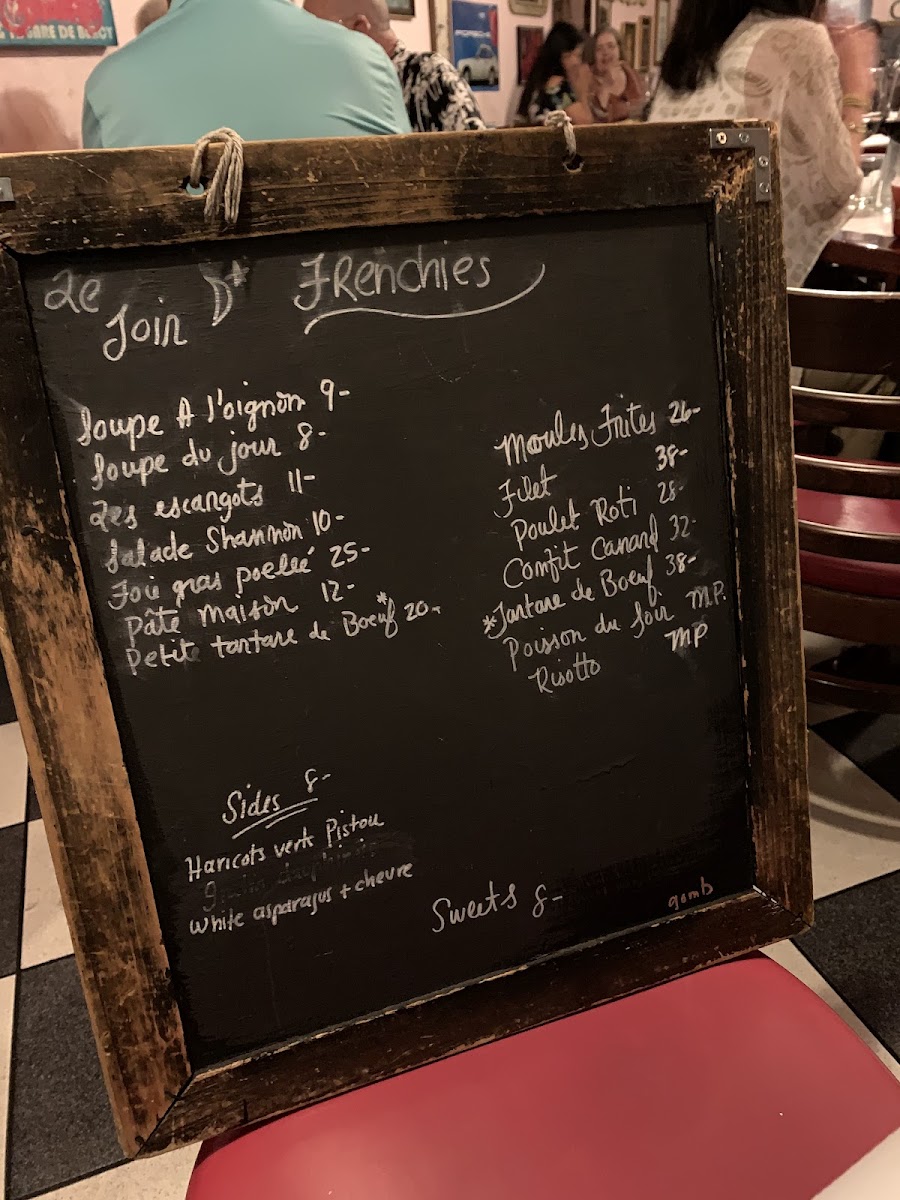 GARE DE BERCY
PORSCHE
Le Join D* FRENCHIES
Soupe A l'oignon 9-
Soupe du jour 8-
Les escargots 11-
Salade Shannon 10-
Foie gras poelée 25-
Pâté maison 12-
Petit tartare de Boeuf* 20-
Moules Frites 26-
Filet 38-
Poulet Roti 28-
Confit Canard 32-
*Tartare de Boeuf 38-
Poisson du Soir M.P.
Risotto MP
Sides 8-
Haricots verts Pistou
White asparagus + chevre
Sweets 8-